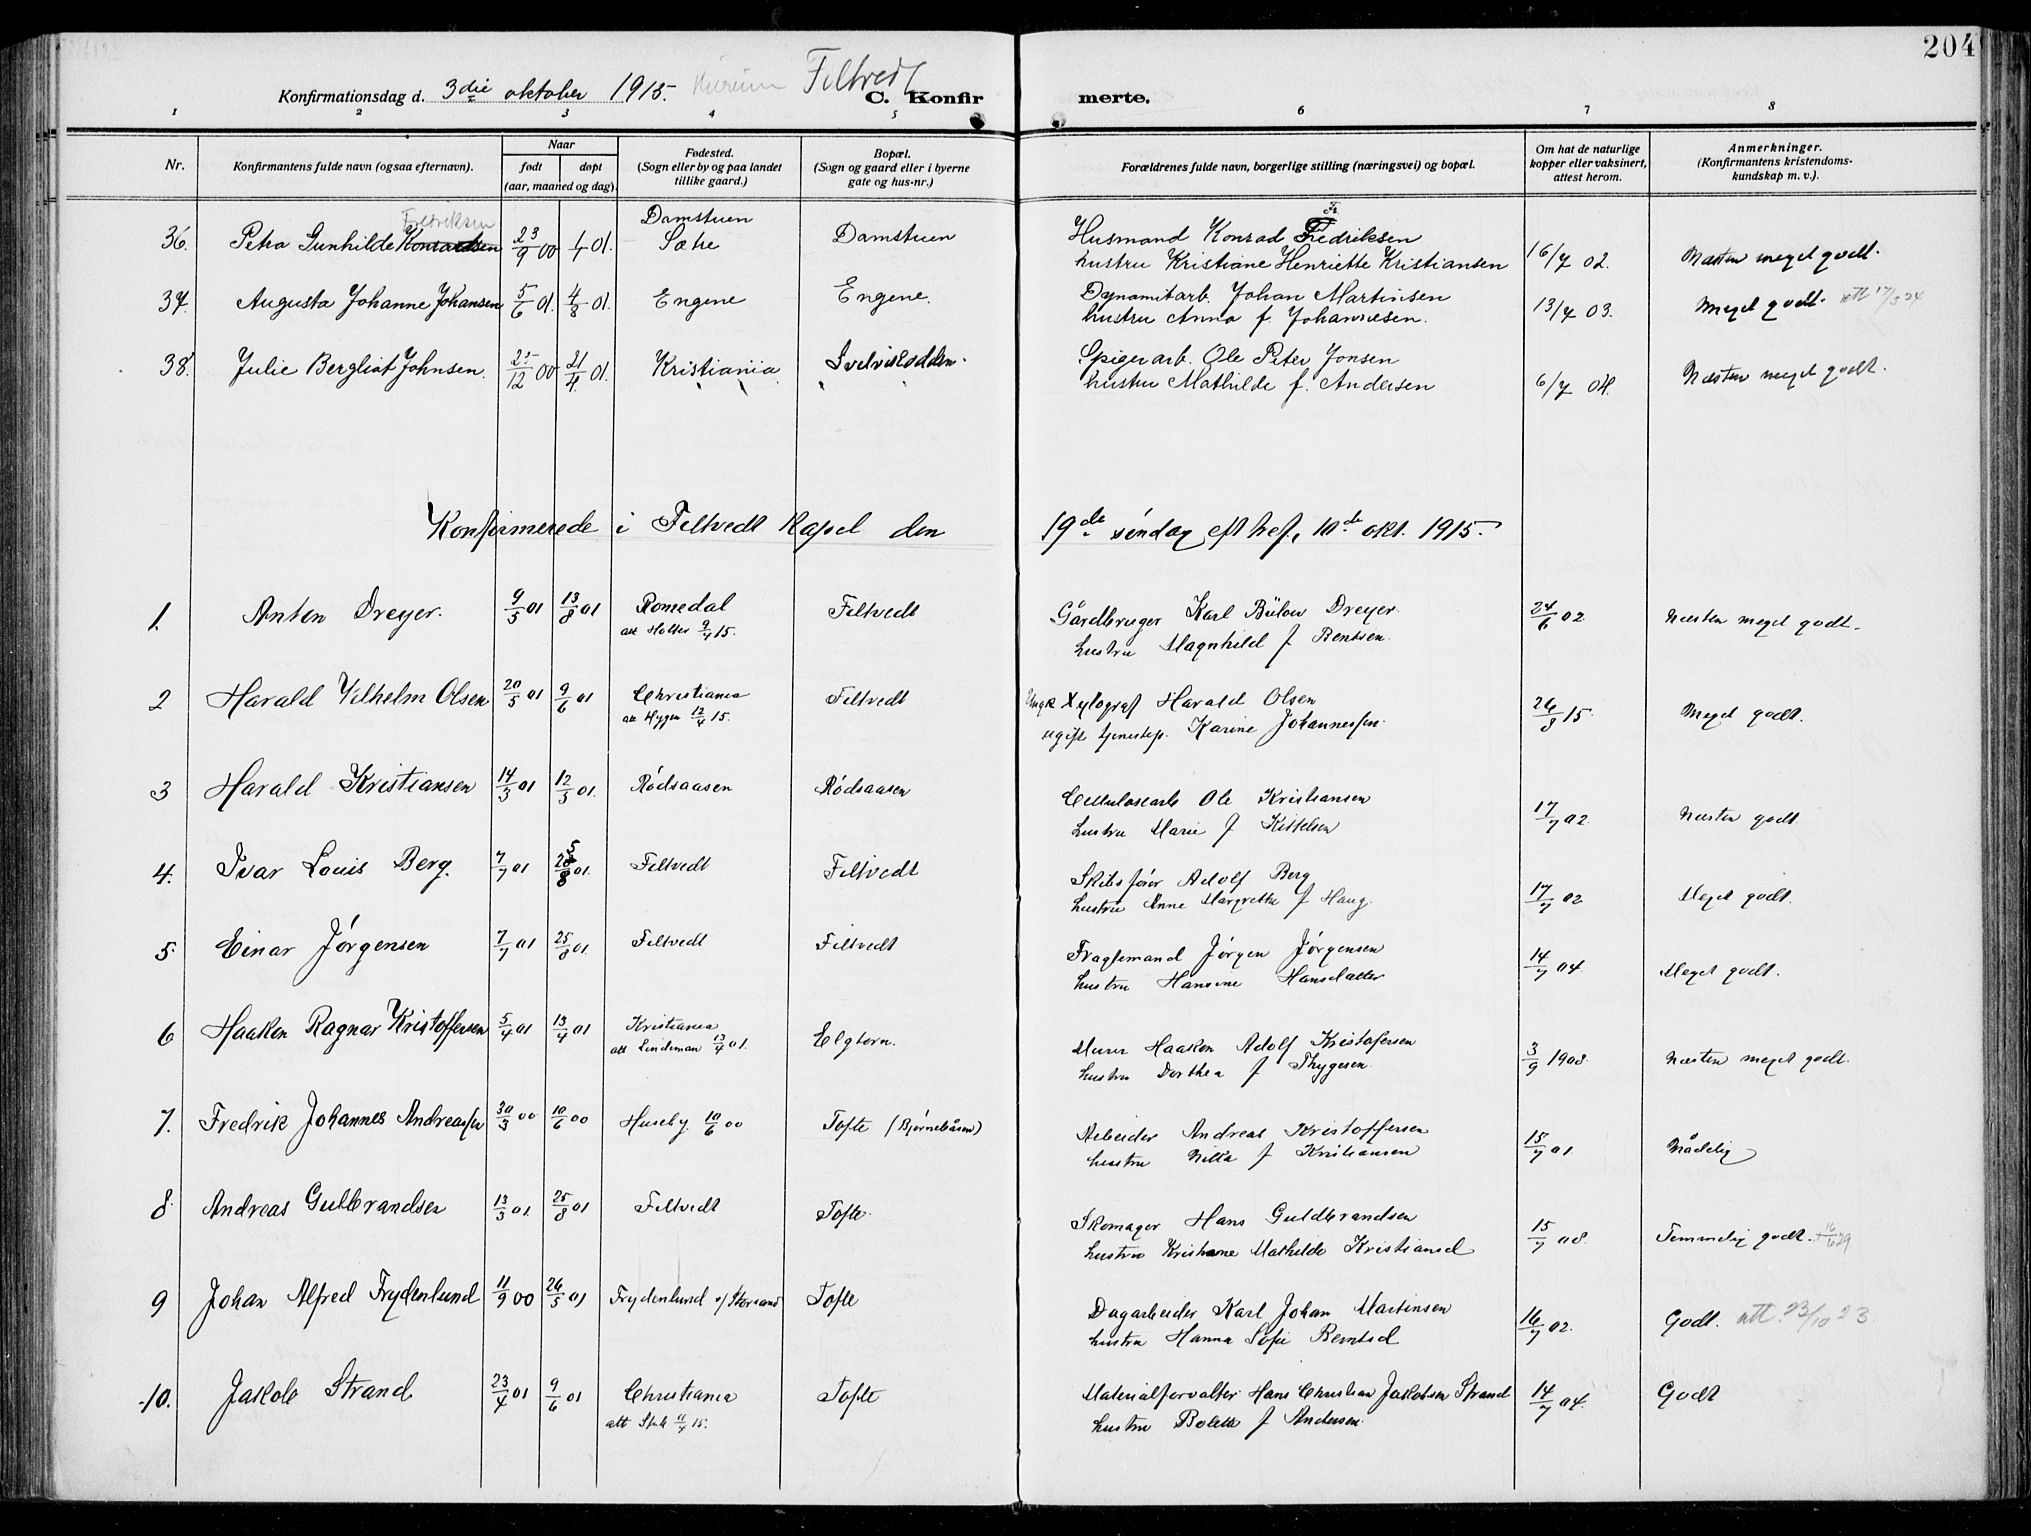 204
Konfirmationsdag d. 3die oktober 1915. Hurum Filtvedt C. Konfir merte.
1 2 3 4 5 6 7 8
Nr. Konfirmantens fulde navn (ogsaa efternavn). Naar født døpt (aar, maaned og dag). Fødested. (Sogn eller by og paa landet tillike gaard.) Bopæl. (Sogn og gaard eller i byerne gate og hus-nr.) Forældrenes fulde navn, borgerlige stilling (næringsvei) og bopæl. Om hat de naturlige kopper eller vaksinert, attest herom. Anmerkninger. (Konfirmantens kristendoms-kundskap m. v.).
Fredriksen Damstuen Husmand Konrad Fredriksen
36. Petra Gunhilde Konradsen 23/9 00 1/1 01. Sætre Damstuen hustru Kristiane Henriette Kristiansen 16/7 02. Næsten meget godt.
37. Augusta Johanne Johansen 5/6 01. 4/8 01. Engene Engene. Dynamitarb. Johan Martinsen 13/7 03. Meget godt. att 17/3 24
hustru Anna f. Johannesen.
38. Julie Bergliot Johnsen. 25/12 00 21/4 01. Kristiania Svelvikodden. Spigerarb. Ole Peter Jonsen
hustru Mathilde f. Andersen 6/7 04. Næsten meget godt.
Konfirmerede i Filtvedt Kapel den 19de søndag eft tref, 10de okt. 1915.
1. Anton Dreyer. 9/5 01 13/8 01 Romedal Filtvedt Gårdbruger Karl Bülow Dreyer 24/6 02 Næsten meget godt.
att Holter 9/4 15. hustru Magnhild f Bentsen.
2 Harald Vilhelm Olsen 20/5 01 9/6 01 Christiania Filtvedt Ungk Xylograf Harald Olsen 26/8 15. Meget godt.
att Hygen 12/4 15. ugift tjenestep. Karine Johannessen.
3 Harald Kristiansen 14/3 01 12/5 01. Rødsaasen Rødsaasen Cellulosearb Ole Kristiansen 17/7 02. Næsten godt.
hustru Marie f Kittelsen
4. Ivar Louis Berg. 7/7 01 25/8 01. Filtvedt Filtvedt Skibsfører Adolf Berg 17/7 02 Meget godt.
hustru Anne Margrethe f Haug.
5. Einar Jørgensen 7/7 01 25/8 01. Filtvedt Filtvedt Fragtemand Jørgen Jørgensen 14/7 04. Meget godt.
hustru Hansine Hansdatter
6 Haakon Ragnar Kristoffersen 5/4 01 13/4 01 Kristiania Elgtorn. Murer Haakon Adolf Kristofersen 3/9 1908. Næsten meget godt.
att Lindeman 13/4 01. hustru Dorthea f Thygesen.
7. Fredrik Johannes Andreassen 30/3 00 10/6 00 Huseby. 10/6 00 Tofte (Bjørnebåsen) Arbeider Andreas Kristoffersen 15/7 01. Nådelig
hustru Nilla f Kristiansen
8. Andreas Gulbrandsen 13/3 01. 25/8 01 Filtvedt Tofte. Skomager Hans Guldbrandsen 15/7 08. Temmelig godt. + 16/6 29
hustru Kristiane Mathilde Kristiansd
9 Johan Alfred Frydenlund 11/9 00 26/5 01 Frydenlund v/ Storsand Tofte Dagarbeider Karl Johan Martinsen 16/7 02. Godt. att. 23/10 23.
hustru Hanna Sofie Berntsd
10. Jakob Strand 23/4 01 9/6 01 Christiania Tofte Materialforvalter Hans Christian Jakobsen Strand 14/7 04. Godt
att 11/4 15. hustru Bolette f Andersen.